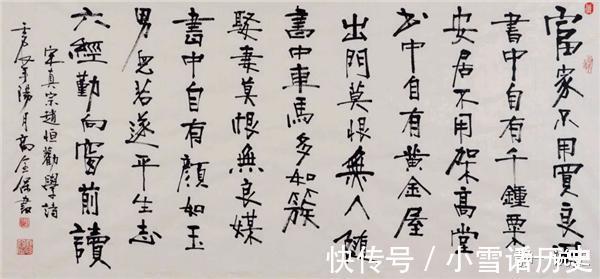 富家不用買良田
書中自有千鍾粟
安居不用架高堂
书中自有黃金屋
出門莫恨無人隨
書中車馬多如簇
娶妻莫恨無良媒
書中自有顏如玉
男兒若遂平生志
六經勤向窗前讀
宋真宗趙恒勸學詩
年陽月高金保書
快传号 / 小雪谱历史